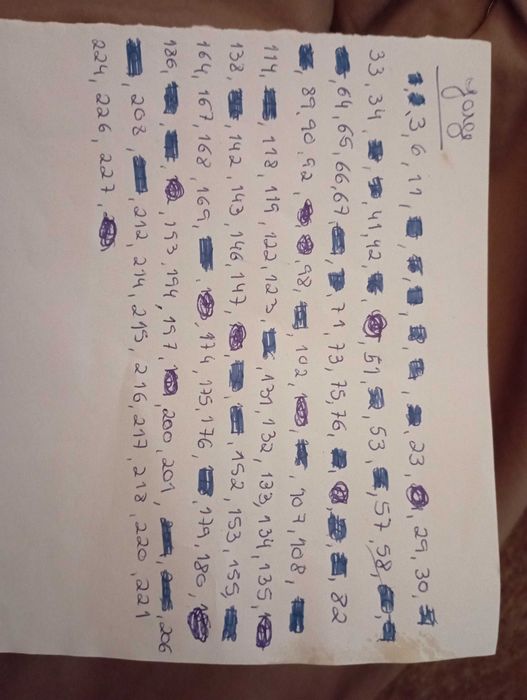 3, 6, 11, 23, 29, 30,
33, 34, 41, 42, 51, 53, 57, 58,
64, 65, 66, 67, 71, 73, 75, 76, 82
89, 90, 92, 98, 102, 107, 108,
114, 118, 119, 122, 123, 131, 132, 133, 134, 135,
138, 142, 143, 146, 147, 152, 153, 155,
164, 167, 168, 169, 174, 175, 176, 179, 180,
186, 193, 194, 197, 200, 201, 206
208, 212, 214, 215, 216, 217, 218, 220, 221
224, 226, 227,